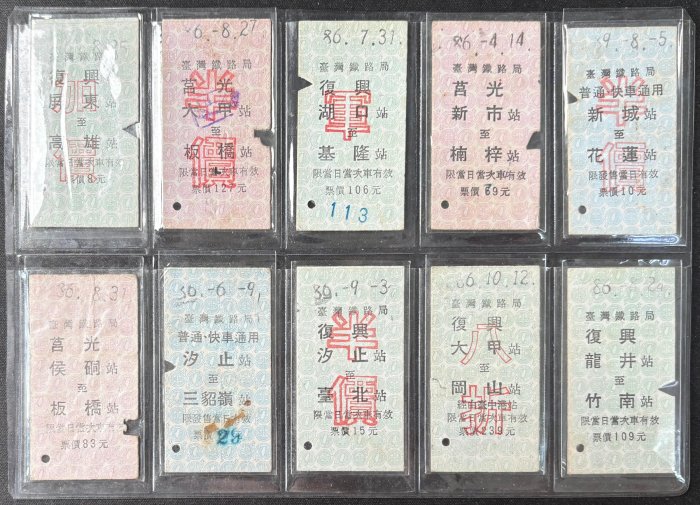 臺灣鐵路局
復興
屏東站
至
高雄站
限當日當次車有效
6.-8.27
臺灣鐵路局
莒光
大甲站
至
板橋站
半價
限當日當次車有效
86.7.31.
臺灣鐵路局
復興
湖口站
至
基隆站
軍
限當日當次車有效
票價106元
113
86-4.14.
臺灣鐵路局
莒光
新市站
至
楠梓站
限當日當次車有效
票價69元
89.-8.-5.
臺灣鐵路局
普通·快車通用
新城站
至
花蓮站
半價
限發售當日有效
票價10元
86.8.31
臺灣鐵路局
莒光
侯硐站
至
板橋站
限當日當次車有效
票價83元
86.-6.-9.
臺灣鐵路局
普通·快車通用
汐止站
至
三貂嶺站
限發售當日有效
票價
28
86.-9.-3.
臺灣鐵路局
復興
汐止站
至
臺北站
半價
限當日當次車有效
票價15元
86.10.12.
臺灣鐵路局
復興
大甲站
至
岡山站
八折
經由臺中港站
限當日當次車有效
票價239元
臺灣鐵路局
復興
龍井站
至
竹南站
限當日當次車有效
票價109元